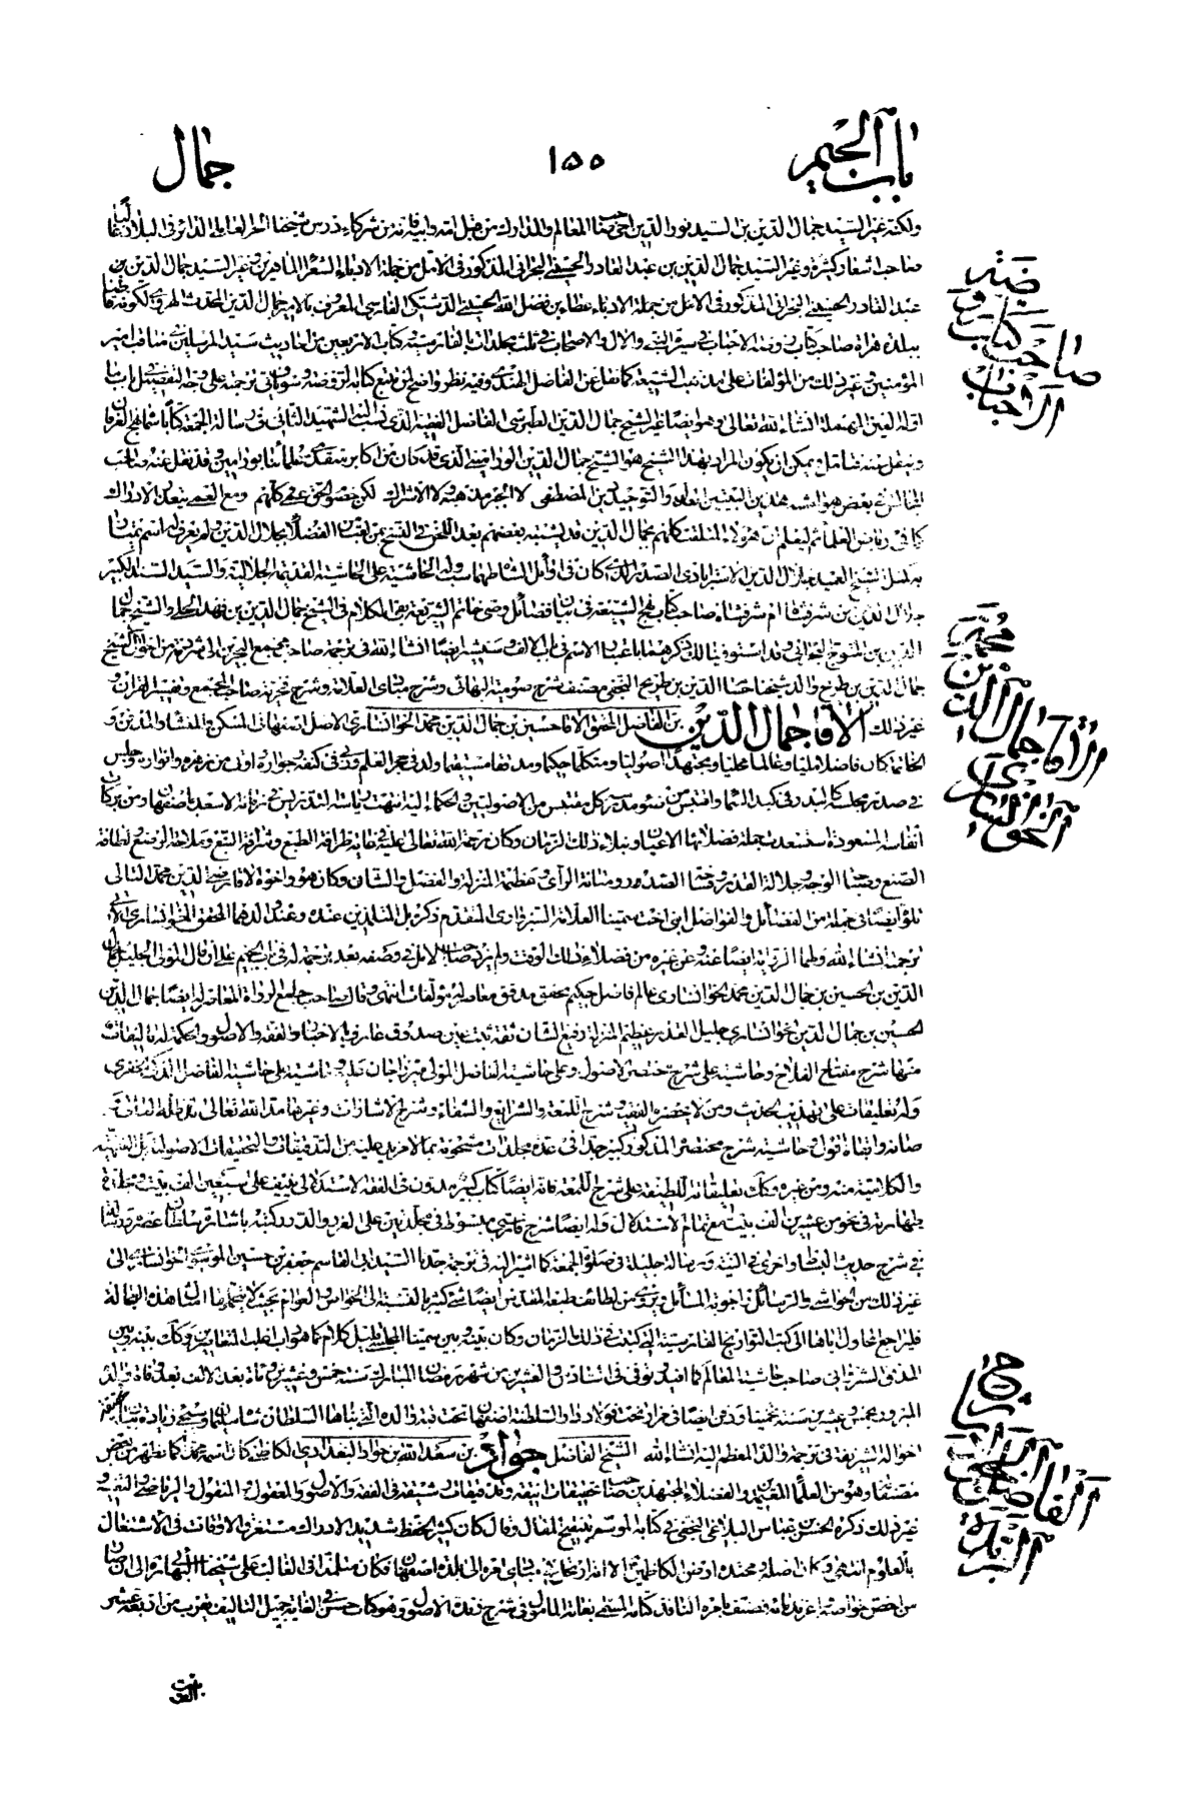 باب الجيم
١٥٥
جمال
ولكنه غير السيد جمال الدين بن السيد نور الدين اخى صاحب المعالم والمدارك من قبل امه وابيه فانه من شركاء درس شيخنا الحر العاملى الدائر فى البلاد
وصاحب اسفار كثيرة وغير السيد جمال الدين بن عبد القادر الحسينى البحرانى المذكور فى الامل من جملة الادباء الشعراء الماهرين وغير السيد جمال الدين بن
عبد القادر الحسينى البحرانى المذكور فى الامل من جملة الادباء عطاء بن فضل الله الحسينى الدشتكى الفارسى المعروف بالامير جمال الدين المحدث الهروى لكونه قاطنا
ببلدة هراة صاحب كتاب روضة الاحباب فى سيرة النبى والال والاصحاب فى ثلث مجلدات بالفارسية وكتاب الاربعين من احاديث سيد المرسلين فى مناقب امير
المؤمنين وغير ذلك من المؤلفات على مذهب الشيعة كما نقل عن الفاضل الهندى وفيه نظر واضح لمن تتبع كتابه الروضة وسوف ياتى ترجمته على وجه التفصيل فى باب ما
اوله العين المهملة انشاء الله تعالى وهو ايضا غير الشيخ جمال الدين الطبرسى الفاضل الفقيه الذى نسب اليه الشهيد الثانى فى رسالة الجمعة كتابا سماه نهج العرفان
وينقل عنه فتامل ويمكن ان يكون المراد بهذا الشيخ هو الشيخ جمال الدين الورامينى الذى قد كان من اكابر متقدمى علمائنا بورامين وقد نقل عنه صاحب
المجالس فى بعض هوامشه هذين البيتين لعلاة والتوحيد دين المصطفى لا الجبر مذهبه ولا الاشراك لكن خصوم الحق عمى كلهم ومع العمى يتعذر الادراك
كما فى رياض العلماء ثم ليعلم ان هؤلاء الملقب كلهم بجمال الدين قد يشتبه بعضهم بعد اللحن فى النسخ بمن لقب من الفضلاء بجلال الدين ولم يعرف له اسم تميز
به لمثل الشيخ العميد جلال الدين الاسترابادى الصدر الذى كان فى اوائل الشاه طهماسب وله الحاشية على الحاشية القديمة الجلالية والسيد السند الكبير
جلال الدين بن شرفشاه ام شرفشاه صاحب كتاب نهج الشيعة فى بيان فضائل وصى خاتم الشريعة بقى الكلام فى الشيخ جمال الدين بن فهد الحلى والشيخ جمال
الدين بن المتوج البحرانى وقد استوفينا لك ذكرهما باعتبار الاسم فى باب الالف وسنشير ايضا انشاء الله فى ترجمة صاحب مجمع البحرين الى شرذمة من احوال الشيخ
جمال الدين بن طريح والد شيخنا حسام الدين بن طريح النجفى مصنف شرح صومية البهائى وشرح مبادى العلامة وشرح فخرية صاحب المجمع وتفسير القران و
غير ذلك الاقا جمال الدين بن الفاضل المحقق الاقا حسين بن جمال الدين محمد الخوانسارى الاصل اصفهانى المسكن والمنشأ والمدفن و
الخاتمة كان فاضلا مليا وعالما محليا ومجتهدا اصوليا ومتكلما حكيما ومدققا مستقيما ولد فى حجر العلم وربى فى كنفه جواره اوتى من زهره وانواره وجلس
فى صدر مجلسه كالبدر فى كبد السماء واقتبس من ضوء مدرسه كل مقتبس من الاصوليين والحكماء اليه انتهت رياسة التدريس فى زمانه الاسعد باصفهان ومن بركات
انفاسه المسعودة استسعدت جملة فضلائها الاعيان ونبلاء ذلك الزمان وكان رحمة الله تعالى عليه فى غاية ظرافة الطبع وشرافة النبع وملاحة الوضع ولطافة
الصنع وصباحة الوجه وجلالة القدر وفسحة الصدر ومتانة الرأى وعظمة المنزلة والفضل والشأن وكان هو واخوه الاقا رضى الدين محمد التالى
تلوه ايضا فى جملة من الفضائل والفواضل ابنى اخت سمينا العلامة السبزوارى المتقدم ذكره بل المتلمذين عنده وعند والدهما المحقق الخوانسارى الاتى
ترجمته انشاء الله ولهما الرواية ايضا عنه وعن غيره من فضلاء ذلك الوقت ولم يزد صاحب الامل فى وصفه بعد ترجمته له فى باب الجيم على ان قال المولى الجليل جمال
الدين بن الحسين بن جمال الدين محمد الخوانسارى عالم فاضل حكيم محقق مدقق معاصر له مؤلفات انتهى وقال صاحب جامع الرواة المعاصر له ايضا جمال الدين
الحسين بن جمال الدين الخوانسارى جليل القدر عظيم المنزلة رفيع الشان ثقة ثبت عين صدوق عارف بالاخبار والفقه والاصول والحكمة له تاليفات
منها شرح مفتاح الفلاح وحاشية على شرح مختصر الاصول وعلى حاشية الفاضل المولى ميرزا جان عليه وحاشية على حاشية الفاضل الذكى الخفرى
وله تعليقات على تهذيب الحديث ومن لا يحضره الفقيه وشرح اللمعة والشرايع والشفاء وشرح الاشارات وغيرها مد الله تعالى ظله العالى و
صانه وابقاه اقول وحاشية شرح مختصر المذكور كبير جدا فى عدة مجلدات مشحونة بما لا مزيد عليه من التدقيقات والتحقيقات الاصولية بل الفقهية
والكلامية منه ومن غيره وكذلك تعليقاته اللطيفة على شرح اللمعة فانه ايضا كتاب كبير مدون فى الفقه الاستدلالى ينيف على سبعين الف بيت ومجلد
طهارته فى نحو من عشرين الف بيت مع تمام الاستدلال وله ايضا شرح فارسى مبسوط فى مجلدين على الغرر والدرر وكتبه باشارة سلطان عصره ورسالة
فى شرح حديث البساط واخرى فى النية ورسالة جليلة فى صلوة الجمعة كما اشير اليه فى ترجمة جدنا السيد ابى القاسم جعفر بن حسين الموسوى الخوانسارى الى
غير ذلك من الحواشى والرسائل واجوبة المسائل ويروى من لطائف طبعه المقدس ايضا شئ كثير بالنسبة الى الخواص والعوام بحيث لا يتحملها امثال هذه العجالة
فليراجع المحاول اياها الى كتب التواريخ الفارسية التى كتبت فى ذلك الزمان وكان بينه وبين سمينا المجلسى قليل كلام كما هو داب اغلب المتعاصرين وكذلك بينه وبين
المدقق الشروانى صاحب حاشية المعالم كما افيد توفى فى السادس والعشرين من شهر رمضان المبارك سنة خمس وعشرين ومأة بعد الالف بعد وفاة والده
المبرور بخمس وعشرين سنة تخمينا ودفن ايضا فى مزار تخت فولاد دار السلطنة اصفهان تحت قبة والده التى بناها السلطان شاه سليمان وسيجئ زيادة بيان لحقيقة
احواله الشريفة فى ترجمة والده المعظم اليه انشاء الله الشيخ الفاضل جواد بن سعد الله بن جواد البغدادى الكاظمى كان اسمه محمد كما يظهر من بعض
مصنفاته وهو من العلماء المعتمدين والفضلاء المجتهدين صاحب تحقيقات انيقة وتدقيقات رشيقة فى الفقه والاصول والمعقول والمنقول والرياضى والتفسير و
غير ذلك ذكره الحسن بن عباس البلاغى النجفى فى كتابه الموسوم بتنقيح المقال وقال كان كثير الحفظ شديد الادراك مستغرق الاوقات فى الاشتغال
بالعلوم انتهى وكان اصله ومحتده ارض الكاظمين الا انه ارتحل فى مبادى امره الى بلدة اصفهان فكان متلمذا فى الغالب على شيخنا البهائى الى ان صار
من اخص خواصه واعز ندمائه فصنف بامره النافذ كتابه المسمى بغاية المامول فى شرح زبدة الاصول وهو كتاب حسن فى الغاية جميل التاليف يقرب من اربعة عشر
الف بيت
ضبط
صاحب كتاب روضة
الاحباب
محمد بن
الاقا جمال الدين
الخوانسارى
الفاضل الجواد